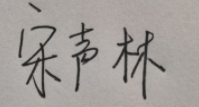 宋声林